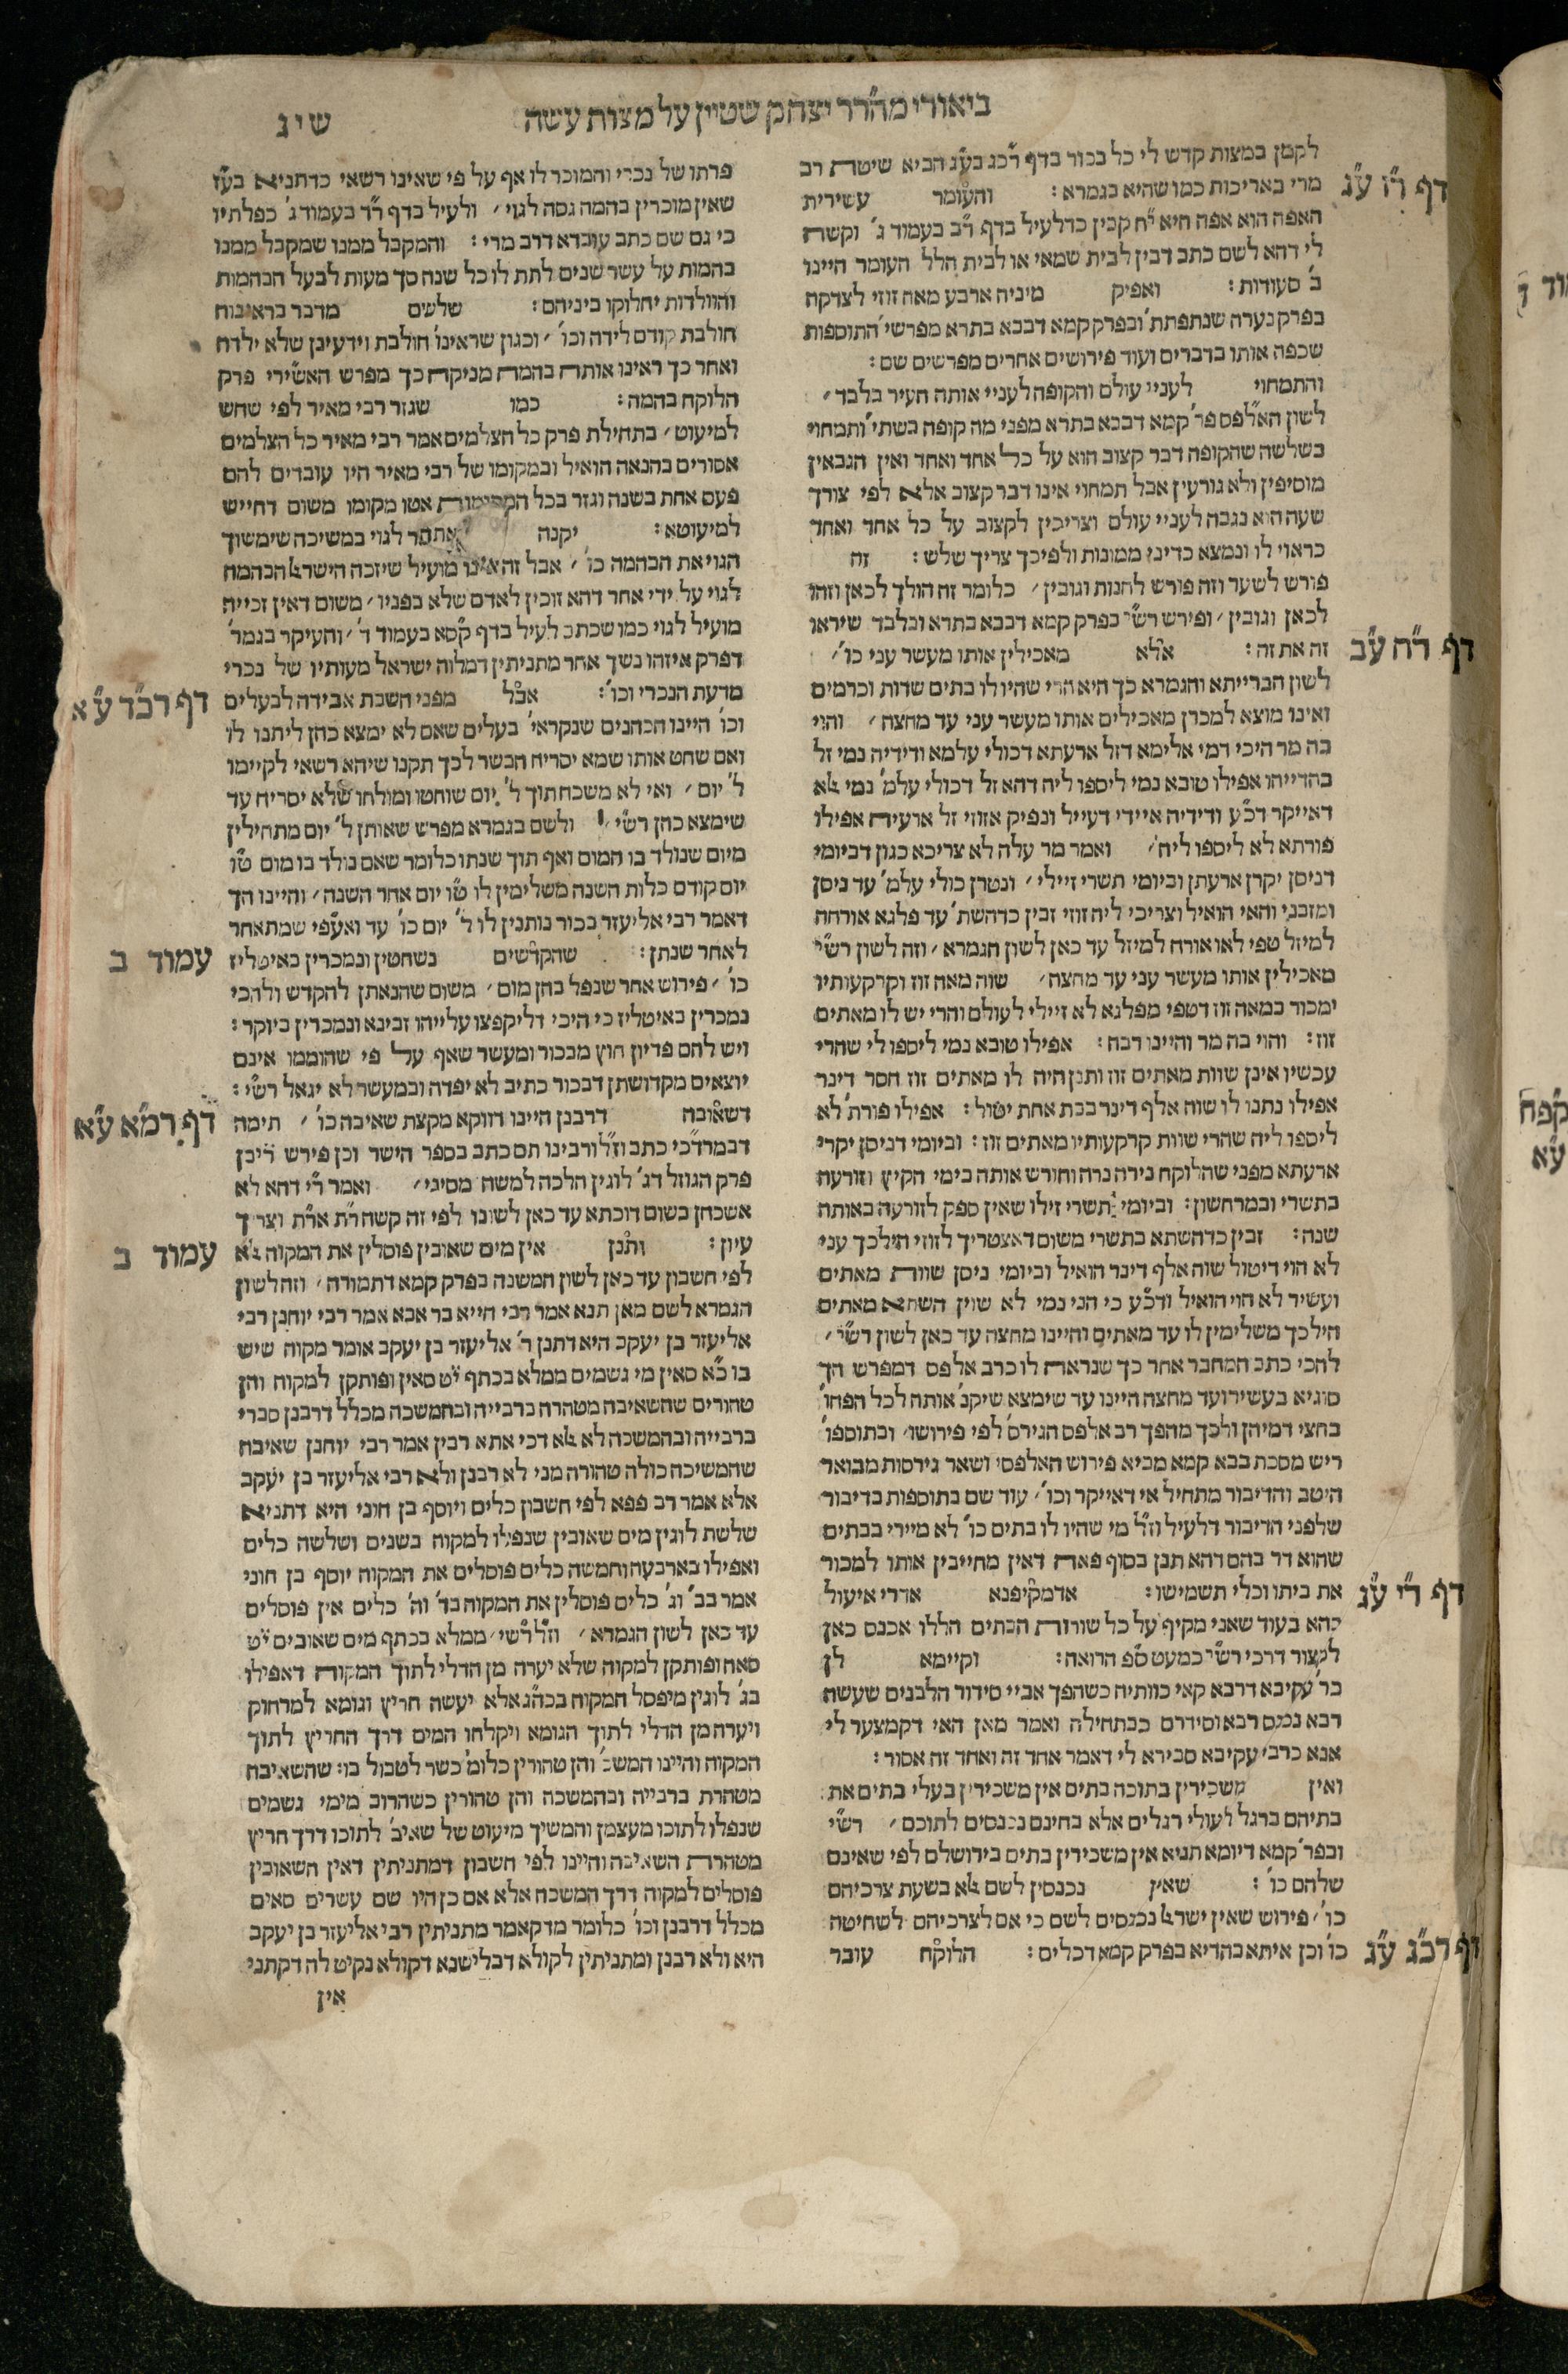 ביאורי מהרר יצחק שטיין על מצות עשה
שיג
לקמן במצות קדש לי כל בכור בדף רכג בעג הביא שיטת רב
דף ר"ז ע"ג
מרי באריכות כמו שהיא בגמרא : והעומר עשירית
האפה הוא אפה היא י"ח קבין כדלעיל בדף ר"ב בעמוד ג' וקשה
לי דהא לשם כתב דבין לבית שמאי או לבית הלל העומר היינו
ב' סעודות : ואפיק מיניה ארבע מאה זוזי לצדקה
בפרק נערה שנתפתת' ובפרק קמא דבבא בתרא מפרשי' התוספות
שכפה אותו בדברים ועוד פירושים אחרים מפרשים שם :
והתמחוי לעניי עולם והקופה לעניי אותה העיר בלבד ׳
לשון האלפס פר' קמא דבבא בתרא מפני מה קופה בשתי' ותמחוי
בשלשה שהקופה דבר קצוב הוא על כל אחד ואחד ואין הגבאין
מוסיפין ולא גורעין אבל תמחוי אינו דבר קצוב אלא לפי צורך
שעה הוא נגבה לעניי עולם וצריכין לקצוב על כל אחד ואחד
כראוי לו ונמצא כדיני ממונות ולפיכך צריך שלש : זה
פורש לשער וזה פורש לחנות וגובין ׳ כלומר זה הולך לכאן וזהו
לכאן וגובין ׳ ופירש רש"י בפרק קמא דבבא בתרא ובלבד שיראו
דף ר"ח ע"ב
זה את זה : אלא מאכילין אותו מעשר עני כו' ׳
לשון הברייתא והגמרא כך היא הרי שהיו לו בתים שדות וכרמים
ואינו מוצא למכרן מאכילים אותו מעשר עני עד מחצה ׳ והוי
בה מר היכי דמי אלימא דזל ארעתא דכולי עלמא ודידיה נמי זל
בהדייהו אפילו טובא נמי ליספו ליה דהא זל דכולי עלמ' נמי אלא
דאייקר דכ"ע ודידיה איידי דעייל ונפיק אזוזי זל ארעיה אפילו
פורתא לא ליספו ליה' ואמר מר עלה לא צריכא כגון דביומי
דניסן יקרן ארעתן וביומי תשרי זיילי ׳ ונטרן כולי עלמ' עד ניסן
ומזבני והאי הואיל וצריכי ליה זוזי זבין כדהשת' עד פלגא אורחה
למיזל טפי לאו אורח למיזל עד כאן לשון הגמרא ׳ וזה לשון רש"י
מאכילין אותו מעשר עני עד מחצה ׳ שוה מאה זוז וקרקעותיו
ימכור במאה זוז דטפי מפלגא לא זיילי לעולם והרי יש לו מאתים
זוז : והוי בה מר והיינו רבה : אפילו טובא נמי ליספו לי שהרי
עכשיו אינן שוות מאתים זוז ותנן היה לו מאתים זוז חסר דינר
אפילו נתנו לו שוה אלף דינר בבת אחת יטול : אפילו פורת' לא
ליספו ליה שהרי שוות קרקעותיו מאתים זוז : וביומי דניסן יקרי
ארעתא מפני שהלוקח נירה נרה וחורש אותה בימי הקיץ וזורעה
בתשרי ובמרחשון : וביומי תשרי זילו שאין ספק לזורעה באותה
שנה : זבין כדהשתא בתשרי משום דאצטריך לזוזי הילכך עני
לא הוי דיטול שוה אלף דינר הואיל וביומי ניסן שוות מאתים
ועשיר לא חוי הואיל ודכ"ע כי הני נמי לא שוין השתא מאתים
הילכך משלימין לו עד מאתים והיינו מחצה עד כאן לשון רש"י ׳
להכי כתב המחבר אחר כך שנראה לו כרב אלפס דמפרש הך
סוגיא בעשיר ועד מחצה היינו עד שימצא שיקנ' אותה לכל הפחו'
בחצי דמיהן ולכך מהפך רב אלפס הגירס' לפי פירושו ׳ ובתוספו'
ריש מסכת בבא קמא מביא פירוש האלפסי ושאר גירסות מבואר
היטב והדיבור מתחיל אי דאייקר וכו' ׳ עוד שם בתוספות בדיבור
שלפני הדיבור דלעיל וז"ל מי שהיו לו בתים כו' לא מיירי בבתים
שהוא דר בהם דהא תנן בסוף פאה דאין מחייבין אותו למכור
דף ר"י ע"ג
את ביתו וכלי תשמישו : אדמקיפנא אדרי איעול
כהא בעוד שאני מקיף על כל שורות הבתים הללו אכנס כאן
לקצור דרכי רש"י כמעט ס"פ הרואה : וקיימא לן
כר' עקיבא דרבא קאי כוותיה כשהפך אביי סידור הלבנים שעשה
רבא נכנס רבא וסידרם כבתחילה ואמר מאן האי דקמצער לי
אנא כרבי עקיבא סבירא לי דאמר אחד זה ואחד זה אסור :
ואין משכירין בתוכה בתים אין משכירין בעלי בתים את
בתיהם ברגל לעולי רגלים אלא בחינם נכנסים לתוכם ׳ רש"י
ובפר' קמא דיומא תניא אין משכירין בתים בירושלם לפי שאינם
שלהם כו' : שאין נכנסין לשם אלא בשעת צרכיהם
כו' ׳ פירוש שאין ישראל נכנסים לשם כי אם לצרכיהם לשחיטה
דף רכ"ג ע"ג
כו' וכן איתא בהדיא בפרק קמא דכלים : הלוקח עובר
פרתו של נכרי והמוכר לו אף על פי שאינו רשאי כדתניא בע"ז
שאין מוכרין בהמה גסה לגוי ׳ ולעיל בדף ר"ד בעמוד ג' כפלתיו
כי גם שם כתב עובדא דרב מרי : והמקבל ממנו שמקבל ממנו
בהמות על עשר שנים לתת לו כל שנה סך מעות לבעל הבהמות
והוולדות יחלוקו ביניהם : שלשים מדבר בראינוה
חולבת קודם לידה וכו' ׳ וכגון שראינו' חולבת וידעינן שלא ילדה
ואחר כך ראינו אותה בהמה מניקה כך מפרש האשירי פרק
הלוקח בהמה : כמו שגזר רבי מאיר לפי שחש
למיעוט ׳ בתחילת פרק כל הצלמים אמר רבי מאיר כל הצלמים
אסורים בהנאה הואיל ובמקומו של רבי מאיר היו עובדים להם
פעם אחת בשנה וגזר בכל המקומות אטו מקומו משום דחייש
למיעוטא : יקנה לגוי במשיכה שימשוך
הגוי את הבהמה כו' ׳ אבל זה אינו מועיל שיזכה הישראל הבהמה
לגוי על ידי אחר דהא זוכין לאדם שלא בפניו ׳ משום דאין זכייה
מועיל לגוי כמו שכתב לעיל בדף קסא בעמוד ד' ׳ והעיקר בגמר'
דפרק איזהו נשך אחר מתניתין דמלוה ישראל מעותיו של נכרי
דף רכ"ד ע"א
מדעת הנכרי וכו' : אבל מפני השבת אבידה לבעלים
וכו' היינו הכהנים שנקראי' בעלים שאם לא ימצא כהן ליתנו לו
ואם שחט אותו שמא יסריח הבשר לכך תקנו שיהא רשאי לקיימו
ל' יום ׳ ואי לא משכח תוך ל' יום שוחטו ומולחו שלא יסריח עד
שימצא כהן רש"י ׳ ולשם בגמרא מפרש שאותן ל' יום מתחילין
מיום שנולד בו המום ואף תוך שנתו כלומר שאם נולד בו מום ט"ו
יום קודם כלות השנה משלימין לו ט"ו יום אחר השנה ׳ והיינו הך
דאמר רבי אליעזר בכור נותנין לו ל' יום כו' עד ואע"פי שמתאחר
עמוד ב
לאחר שנתן : שהקדשים נשחטין ונמכרין באיטליז
כו' ׳ פירוש אחר שנפל בהן מום ׳ משום שהנאתן להקדש ולהכי
נמכרין באיטליז כי היכי דליקפצו עלייהו זבינא ונמכרין ביוקר :
ויש להם פדיון חוץ מבכור ומעשר שאף על פי שהוממו אינם
יוצאים מקדושתן דבכור כתיב לא יפדה ובמעשר לא יגאל רש"י :
דף רמ"א ע"א
דשאובה דרבנן היינו דווקא מקצת שאיבה כו' ׳ תימה
דבמרדכי כתב וז"ל ורבינו תם כתב בספר הישר וכן פירש ריבן
פרק הגוזל דג' לוגין הלכה למשה מסיני ׳ ואמר ר"י דהא לא
אשכחן בשום דוכתא עד כאן לשונו לפי זה קשה ר"ת אר"ת וצריך
עמוד ב
עיון : ותנן אין מים שאובין פוסלין את המקוה אלא
לפי חשבון עד כאן לשון המשנה בפרק קמא דתמורה ׳ וזה לשון
הגמרא לשם מאן תנא אמר רבי חייא בר אבא אמר רבי יוחנן רבי
אליעזר בן יעקב היא דתנן ר' אליעזר בן יעקב אומר מקוה שיש
בו כ"א סאין מי גשמים ממלא בכתף י"ט סאין ופותקן למקוה והן
טהורים שהשאיבה מטהרה ברבייה ובהמשכה מכלל דרבנן סברי
ברבייה ובהמשכה לא אלא דכי אתא רבין אמר רבי יוחנן שאיבה
שהמשיכה כולה טהורה מני לא רבנן ולא רבי אליעזר בן יעקב
אלא אמר רב פפא לפי חשבון כלים ויוסף בן חוני היא דתניא
שלשת לוגין מים שאובין שנפלו למקוה בשנים ושלשה כלים
ואפילו בארבעה וחמשה כלים פוסלים את המקוה יוסף בן חוני
אמר בב' וג' כלים פוסלין את המקוה בד' וה' כלים אין פוסלים
עד כאן לשון הגמרא ׳ וז"ל רש"י ׳ ממלא בכתף מים שאובים י"ט
סאה ופותקן למקוה שלא יערה מן הדלי לתוך המקוה דאפילו
בג' לוגין מיפסל המקוה בכה"ג אלא יעשה חריץ וגומא למרחוק
ויערה מן הדלי לתוך הגומא ויקלחו המים דרך החריץ לתוך
המקוה והיינו המשכ' והן טהורין כלומ' כשר לטבול בו : שהשאיבה
מטהרת ברבייה ובהמשכה והן טהורין כשהרוב מימי גשמים
שנפלו לתוכו מעצמן והמשיך מיעוט של שאיב' לתוכו דרך חריץ
מטהרת השאיבה והיינו לפי חשבון דמתניתין דאין השאובין
פוסלים למקוה דרך המשכה אלא אם כן היו שם עשרים סאים
מכלל דרבנן וכו' כלומר מדקאמר מתניתין רבי אליעזר בן יעקב
היא ולא רבנן ומתניתין לקולא דבלישנא דקולא נקיט לה דקתני
אין